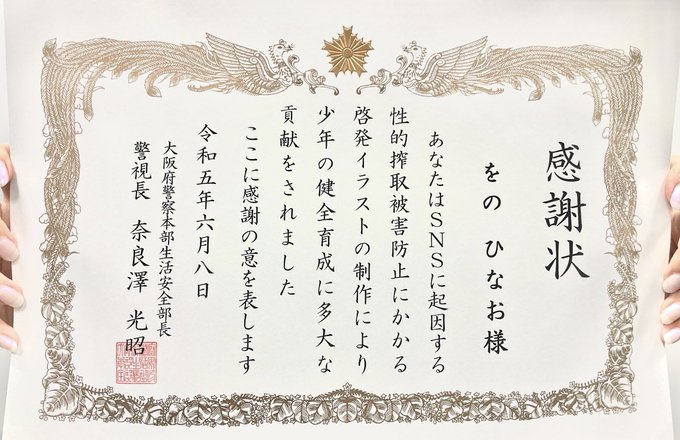 感謝状
をの ひなお様
あなたはSNSに起因する
性的搾取被害防止にかかる
啓発イラストの制作により
少年の健全育成に多大な
貢献をされました
ここに感謝の意を表します
令和五年六月八日
大阪府警察本部生活安全部長
警視長 奈良澤 光昭